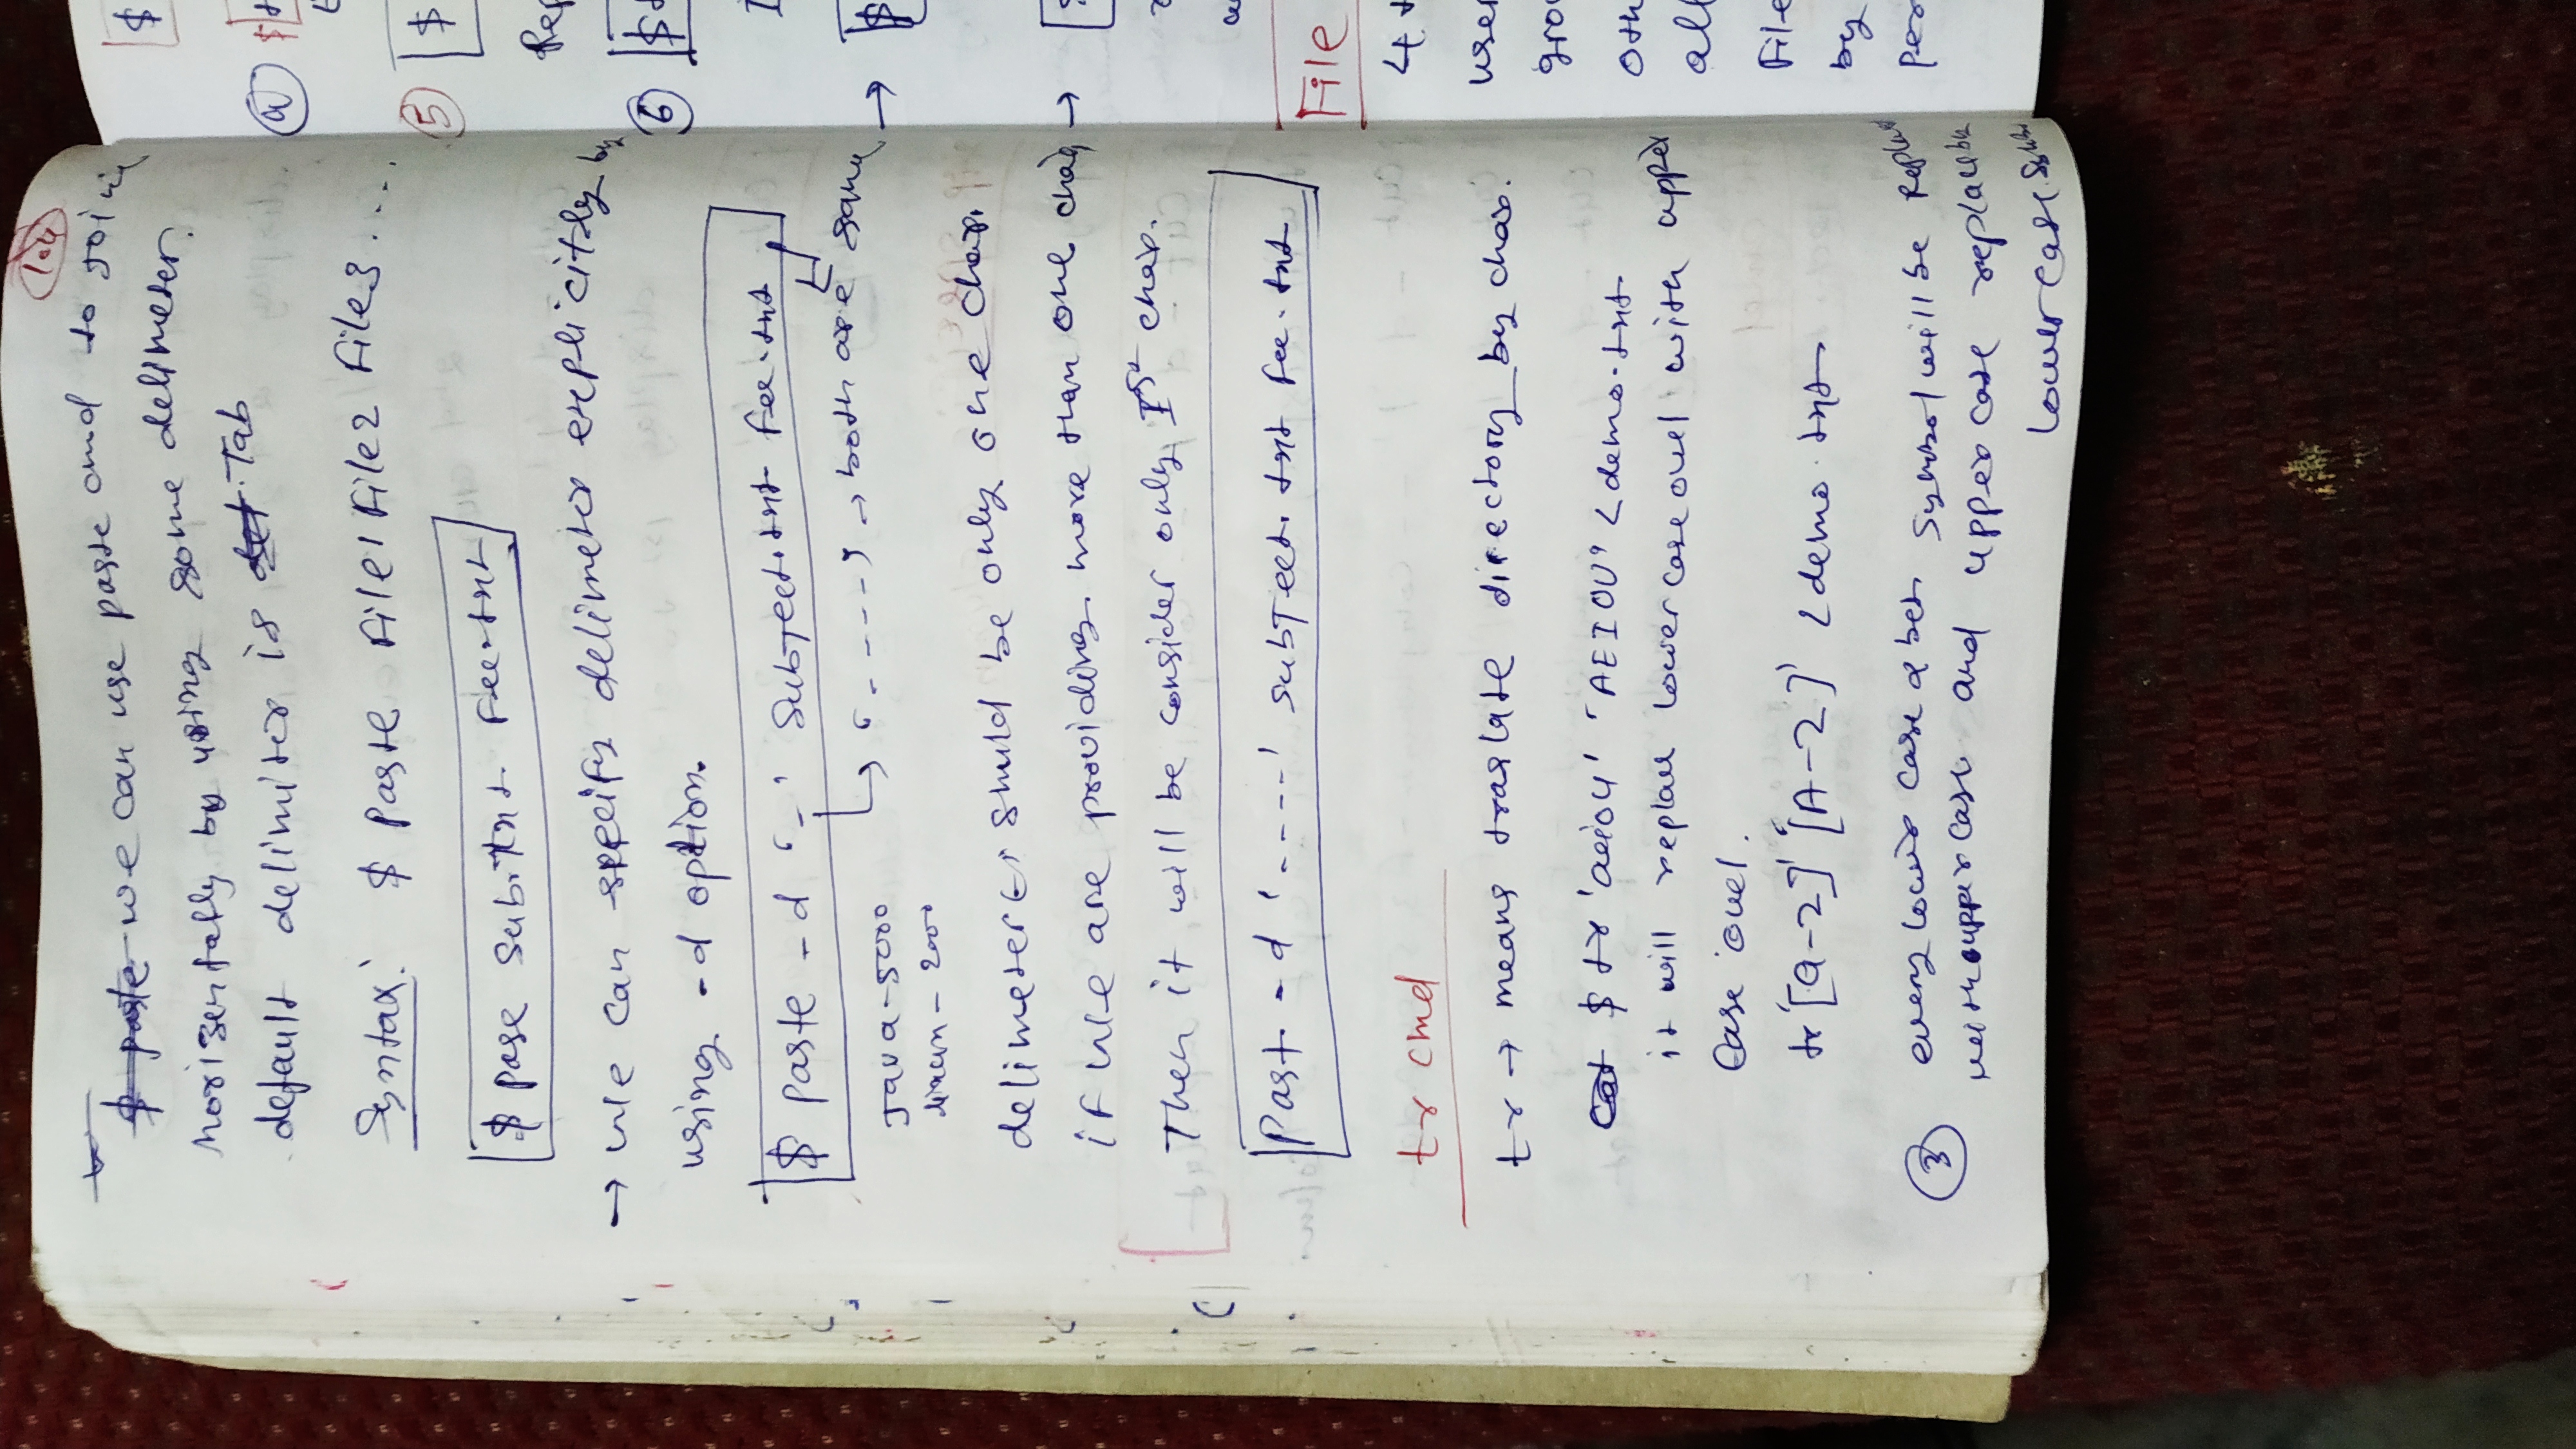 104
$ paste we can use paste cmd to Join
horizentally by using some delimeter.
default delimiter is def. Tab
Syntax: $ Paste File1 File2 File3 ....
$ pase Sub.txt Fee.txt
→ We can specify delimeter explicitly by
using -d option.
$ paste -d '-' SubJect.txt Fee.txt
'-----' → both are same
Java-5000
- 2000
delimeter should be only one char.
if We are providing more than one char
Then it will be consider only Ist char.
Past -d '----' SubJect.txt Fee.txt
tr cmd
tr → means traslate directory by char.
Cat $ tr 'aeiou' 'AEIOU' < demo.txt
it will replace lower case ouel with upper
Case ouel.
tr '[a-z]' '[A-Z]' < demo.txt
3 every lower case α bet Symbol will be Replace
with upper case and upper case replace by
lower case
$
4 $
5 $
Rep
6 $
I
→ $
→
File
4
user
gro
oth
all
File
by
per